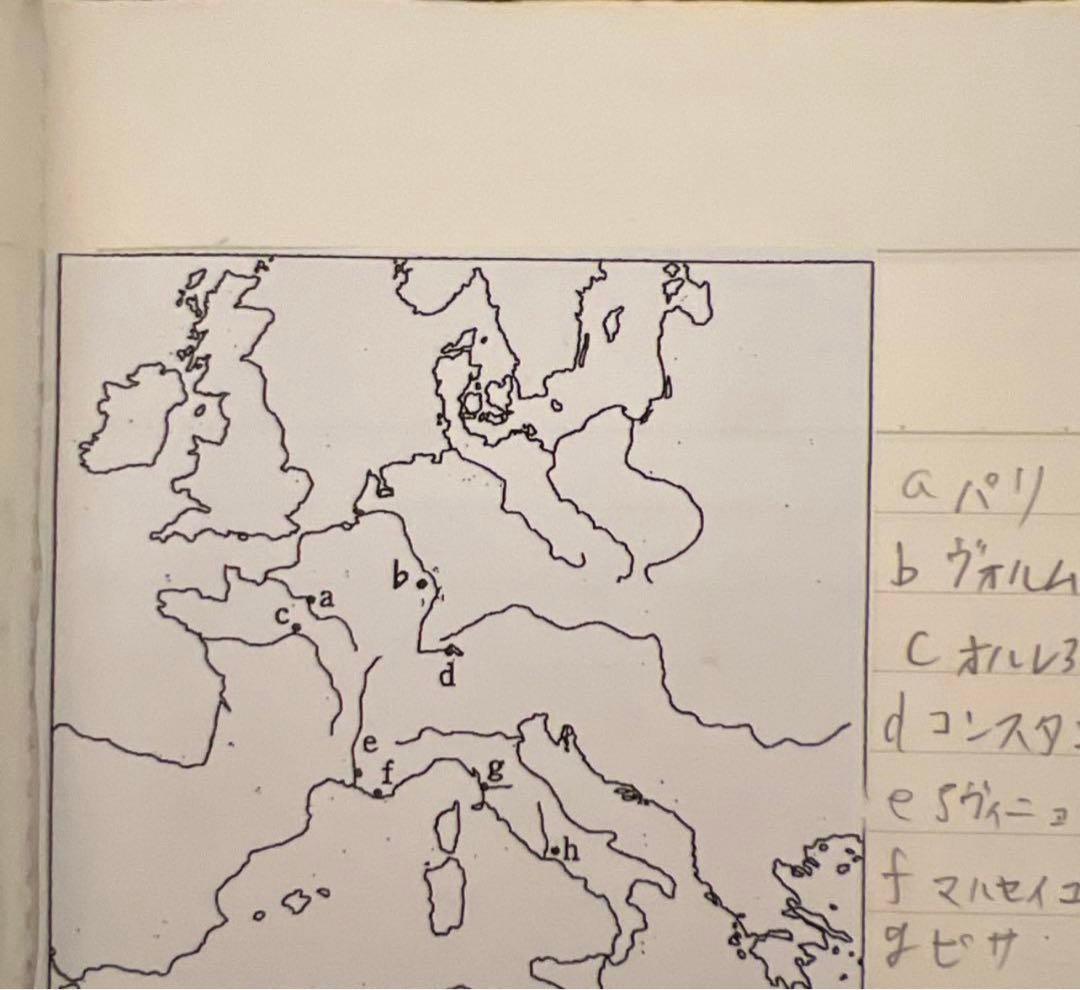 a
b
c
d
e
f
g
h
a パリ
b ヴォルム
c オルレ
d コンスタ
e ヴィニョ
f マルセイユ
g ピサ